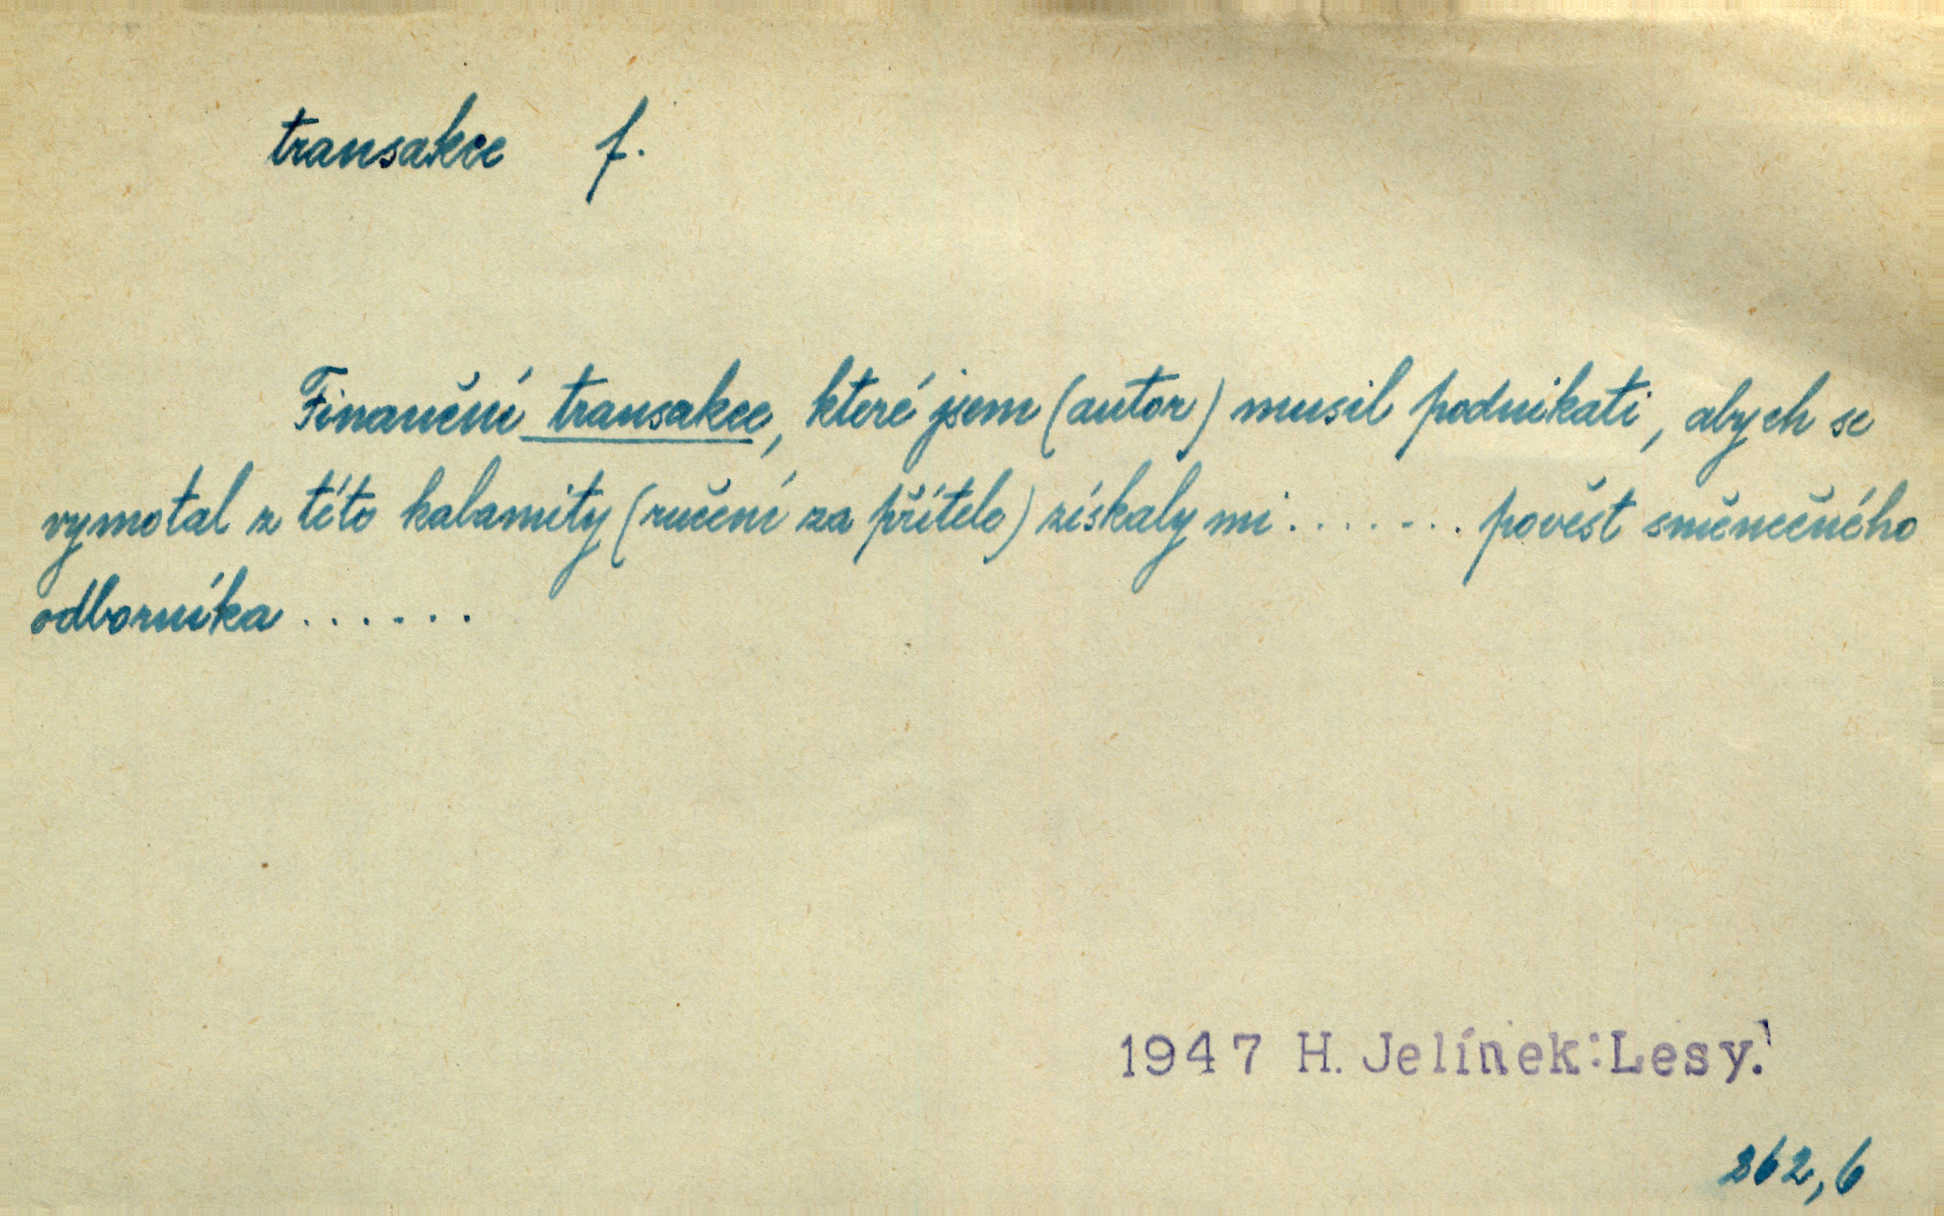 transakce f.
Finanční transakce, které jsem (autor) musil podnikati, abych se
vymotal z této kalamity (ručení za přítele) získaly mi . . . . . . . pověst směnečného
odborníka . . . . . .
1947 H. Jelínek:Lesy.
262,6